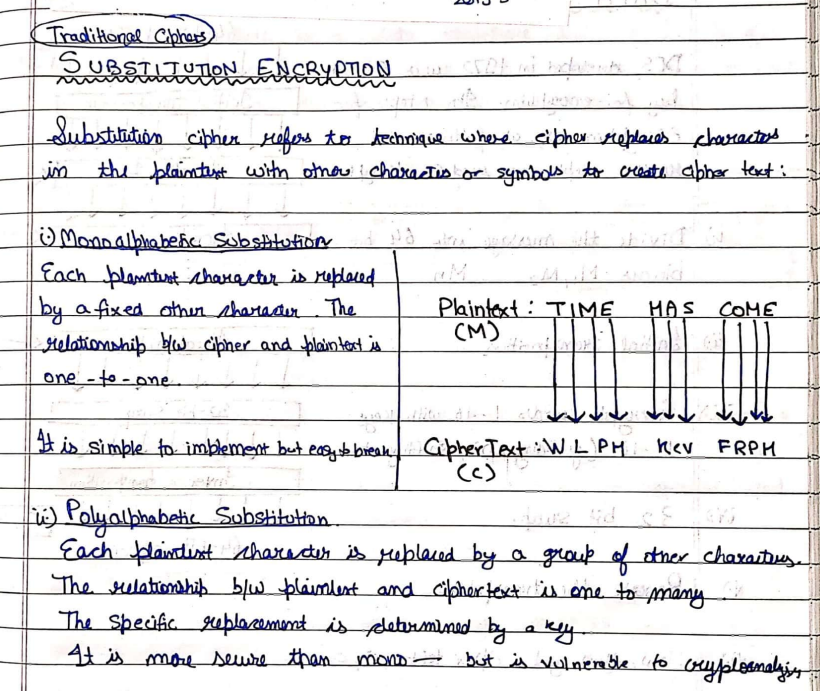 Traditional Ciphers
SUBSTITUTION ENCRYPTION
Substitution cipher refers to technique where cipher replaces characters
in the plaintext with other characters or symbols to create cipher text:
i) Monoalphabetic Substitution
Each plaintext character is replaced
by a fixed other character. The
relationship b/w cipher and plaintext is
one-to-one.
It is simple to implement but easy to break
Plaintext : TIME HAS COME
(M)
CipherText : WLPH KCV FRPH
(C)
ii) Polyalphabetic Substitution.
Each plaintext character is replaced by a group of other characters.
The relationship b/w plaintext and ciphertext is one to many.
The specific replacement is determined by a key.
It is more secure than mono— but is vulnerable to cryptoanalysis